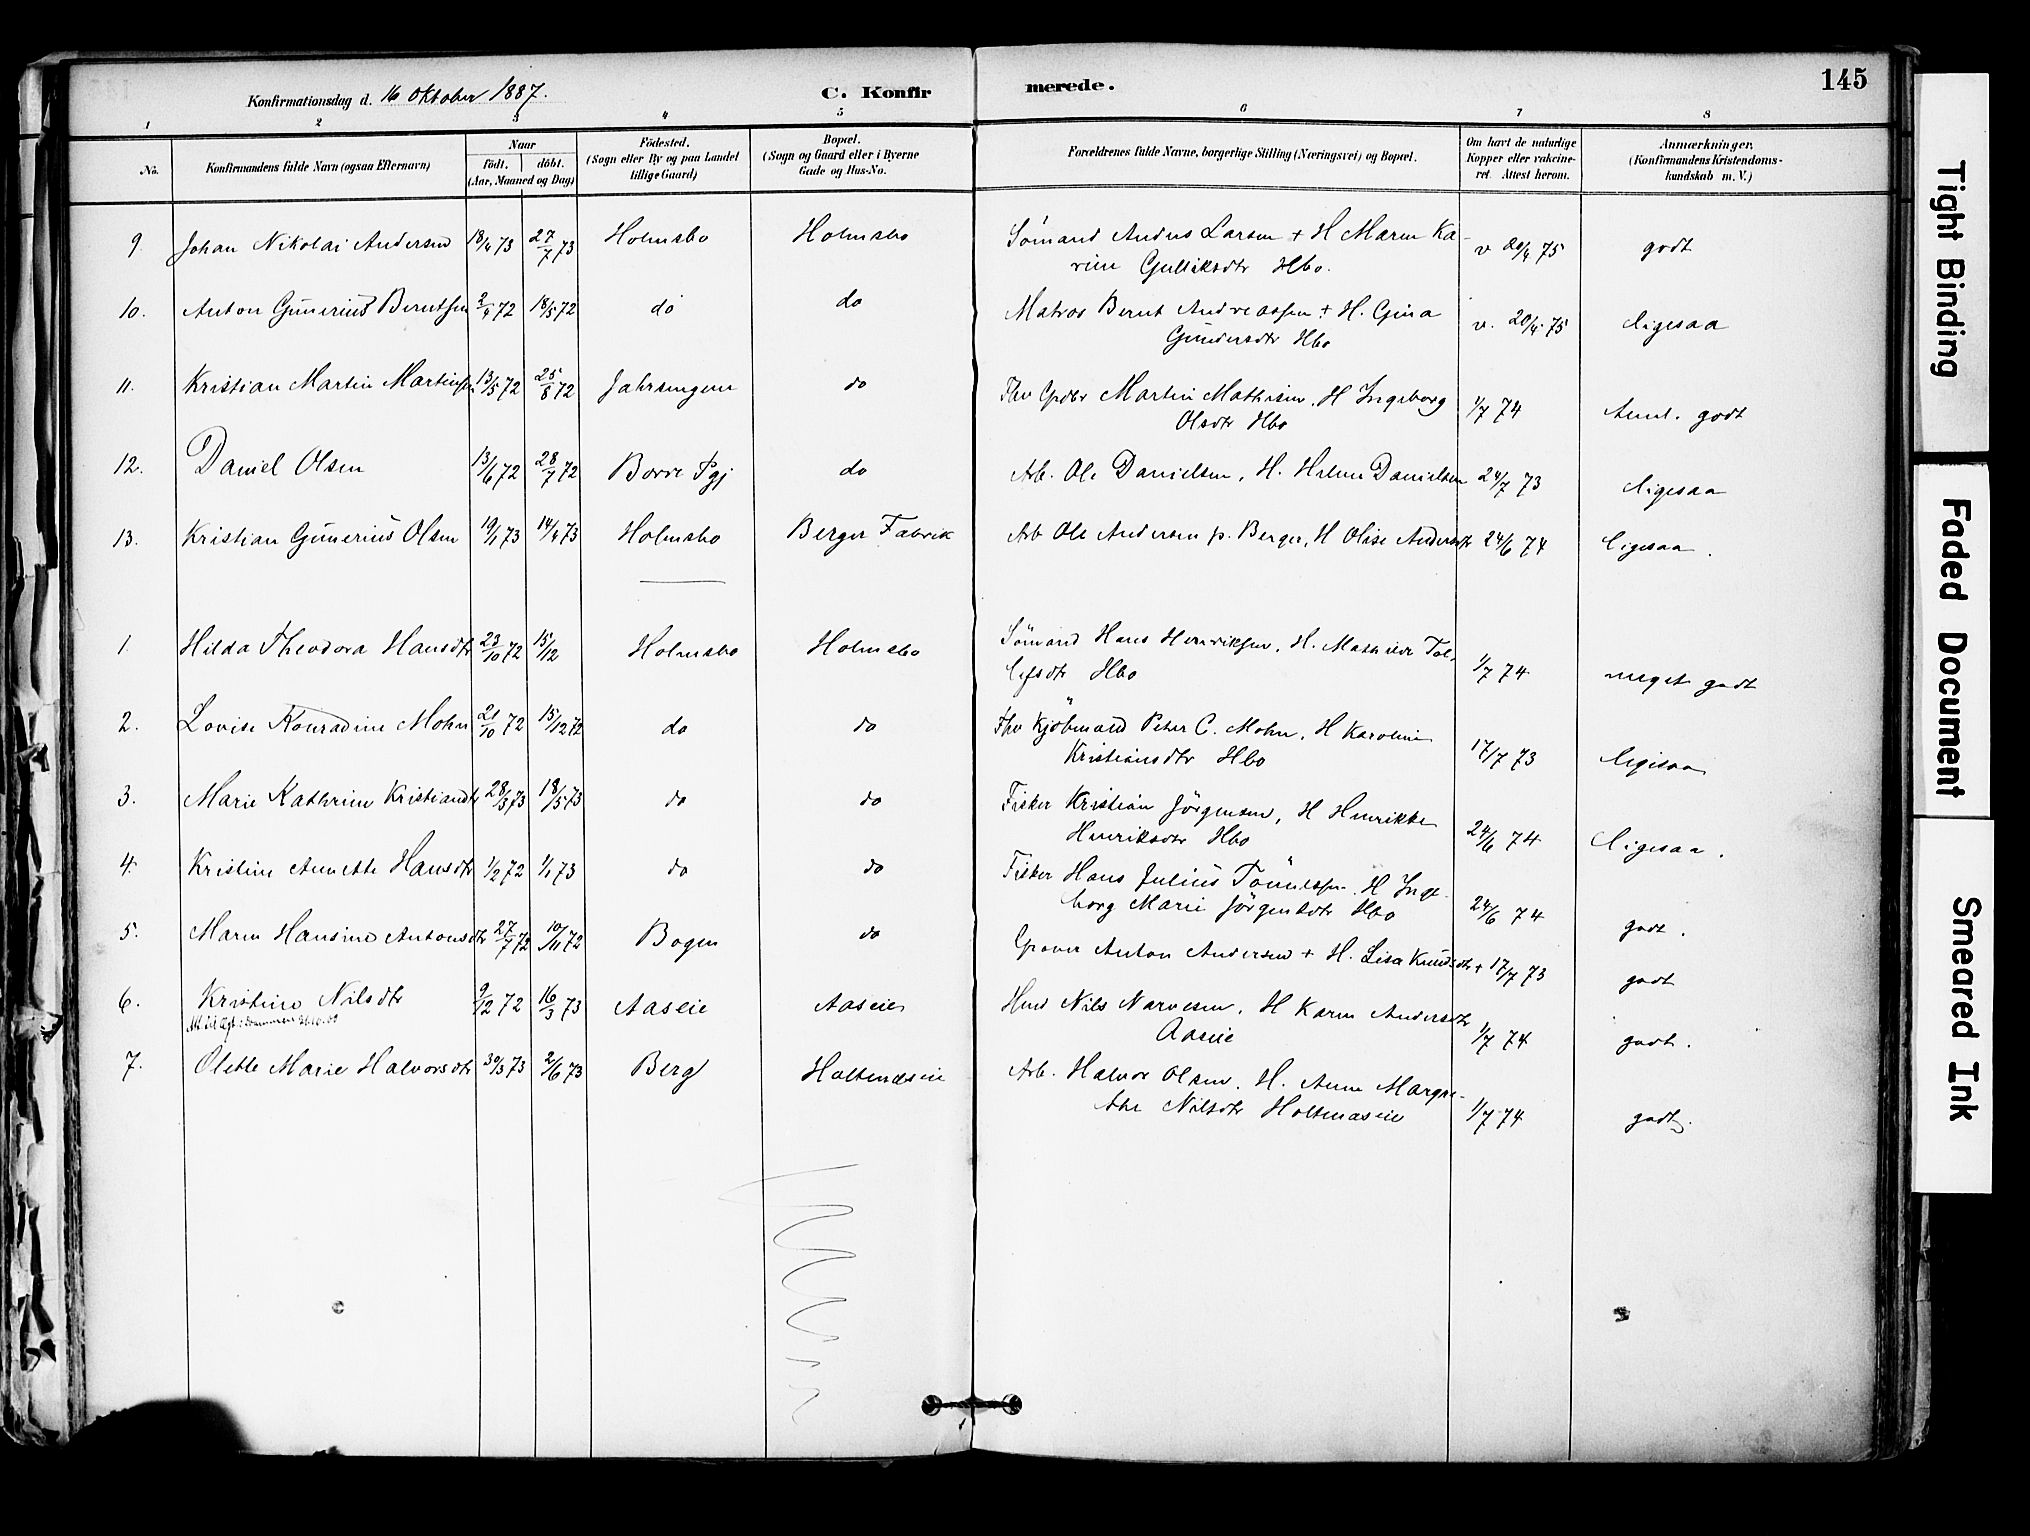 Konfirmationsdag d. 16 Oktober 1887.
C. Konfir
merede.
145
1 2 3 4 5 6 7 8
No.
Konfirmandens fulde Navn (ogsaa Efternavn)
Naar
födt. döbt.
(Aar, Maaned og Dag)
Födested.
(Sogn eller By og paa Landet
tillige Gaard)
Bopæl.
(Sogn og Gaard eller i Byerne
Gade og Hus-No.
Forældrenes fulde Navne, borgerlige Stilling (Næringsvei) og Bopæl.
Om havt de naturlige
Kopper eller vakcine-
ret. Attest herom.
Anmærkninger.
(Konfirmandens Kristendoms-
kundskab m. V.)
9. Johan Nikolai Andersen 18/4 73 27/7 73 Holmsbo Holmsbo Sömand Andres Larsen + H Maren Ka- v 20/4 75 godt
rine Gulliksdtr Hbo.
10. Anton Gunerius Berntsen 2/4 72 18/5 72 do do Matros Bernt Andreassen + H. Gina v. 20/4 75 ligesaa
Gundersdtr Hbo
11. Kristian Martin Martinsen 13/5 72 25/8 72 Jahrsengen do Fhv Gpdbr Martin Mathisen, H Ingeborg 1/7 74 Antl. godt
Olsdtr Hbo
12. Daniel Olsen 13/6 72 28/7 72 Borre Pgj do Arb. Ole Danielsen, H. Helene Danielsen 24/7 73 ligesaa
13. Kristian Gunerius Olsen 19/1 73 14/4 73 Holmsbo Berger Fabrik Arb Ole Andersen p. Berger, H Olise Andersdtr 24/6 74 ligesaa.
1. Hilda Theodora Hansdtr 23/10 72 15/12 Holmsbo Holmsbo Sömand Hans Henriksen, H. Mathilde Tol- 1/7 74 meget godt
lefsdtr Hbo
2. Lovise Konradine Mohn 21/10 72 15/12 72 do do Fhv Kjöbmand Peter C. Mohn, H Karoline 17/7 73 ligesaa
Kristiansdtr Hbo
3. Marie Kathrine Kristiansdtr 28/3 73 18/5 73 do do Fisker Kristian Jörgensen, H Henrikke 24/6 74 ligesaa.
Henriksdtr Hbo
4. Kristine Annette Hansdtr 1/2 72 1/1 73 do do Fisker Hans Julius Tönnesen, H Inge- 24/6 74 godt.
borg Marie Jörgensdtr Hbo
5. Maren Hansine Antonsdtr 27/7 72 10/11 72 Bogen do Gpaver Anton Andersen + H. Lisa Knudsdtr + 17/7 73 godt
6. Kristine Nilsdtr 9/12 72 16/3 73 Aaseie Aaseie Hmd Nils Narvesen, H Karen Andersdtr 1/7 74 godt.
Aaseie
7. Olette Marie Halvorsdtr 30/3 73 2/6 73 Berg Holtenæseie Arb. Halvor Olsen, H. Anne Margre- 1/7 74 godt.
the Nilsdtr Holtenæseie
Tight Binding
Faded Document
Smeared Ink